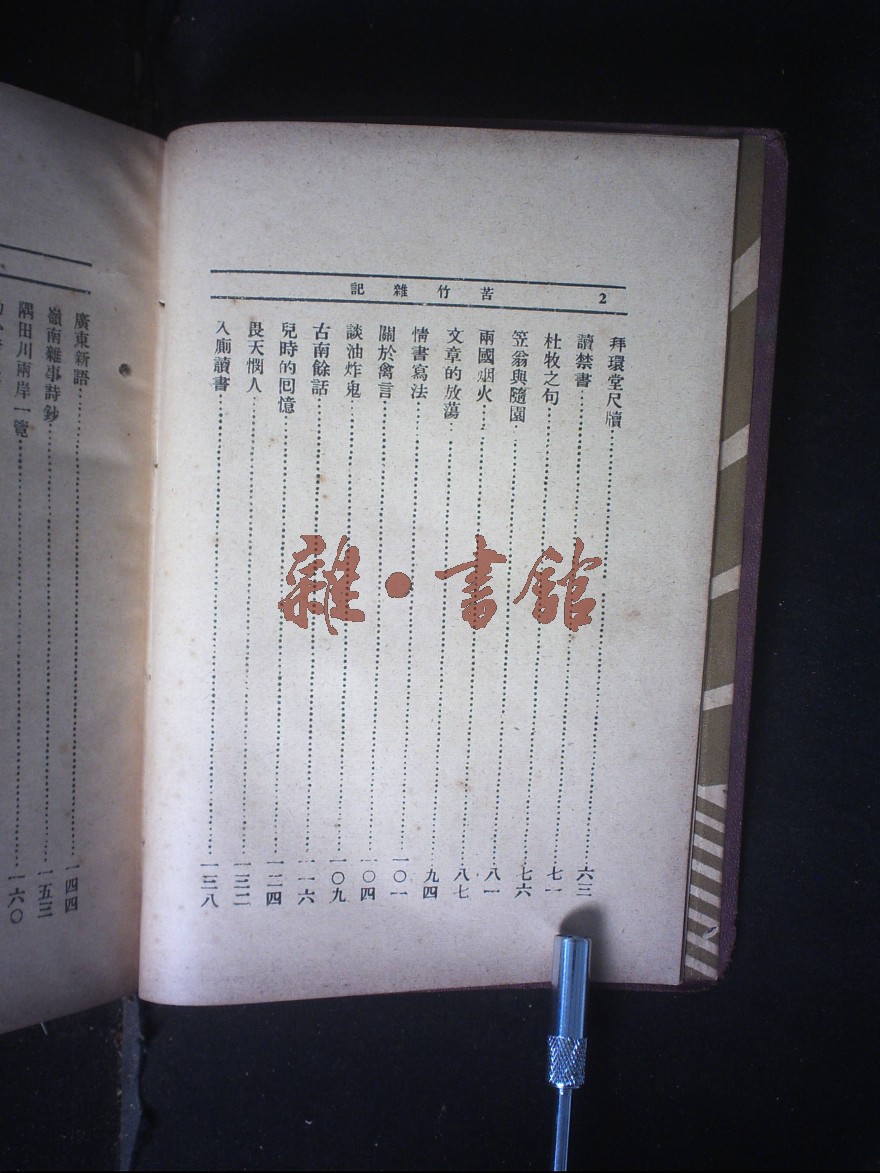 2 苦竹雜記
拜環堂尺牘……六三
讀禁書……七一
杜牧之句……七六
笠翁與隨園……八一
兩國烟火……八七
文章的放蕩……九四
情書寫法……一〇一
關於禽言……一〇四
談油炸鬼……一〇九
古南餘話……一一六
兒時的回憶……一二四
畏天憫人……一三二
入廁讀書……一三八
廣東新語……一四四
嶺南雜事詩鈔……一五三
隅田川兩岸一覽……一六〇
雜·書館